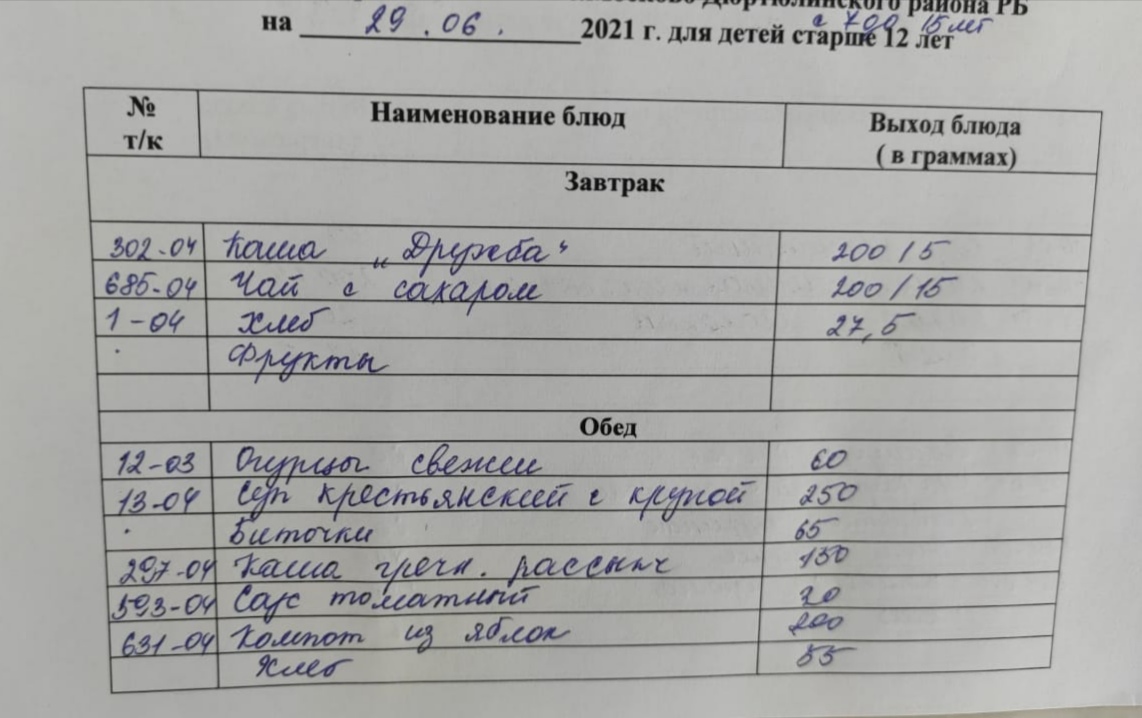 Дюртюлинского района РБ
на 29.06. 2021 г. для детей старше 12 лет
с 7 до 15 лет
№ т/к Наименование блюд Выход блюда ( в граммах)
Завтрак
302-04 Каша „Дружба“ 200/5
685-04 Чай с сахаром 200/15
1-04 Хлеб 27,5
Фрукты
Обед
12-03 Огурцы свежии 60
13-04 Суп крестьянский с крупой 250
Биточки 65
297-04 Каша гречн. рассыпч 150
593-04 Соус томатный 20
631-04 Компот из яблок 200
Хлеб 55